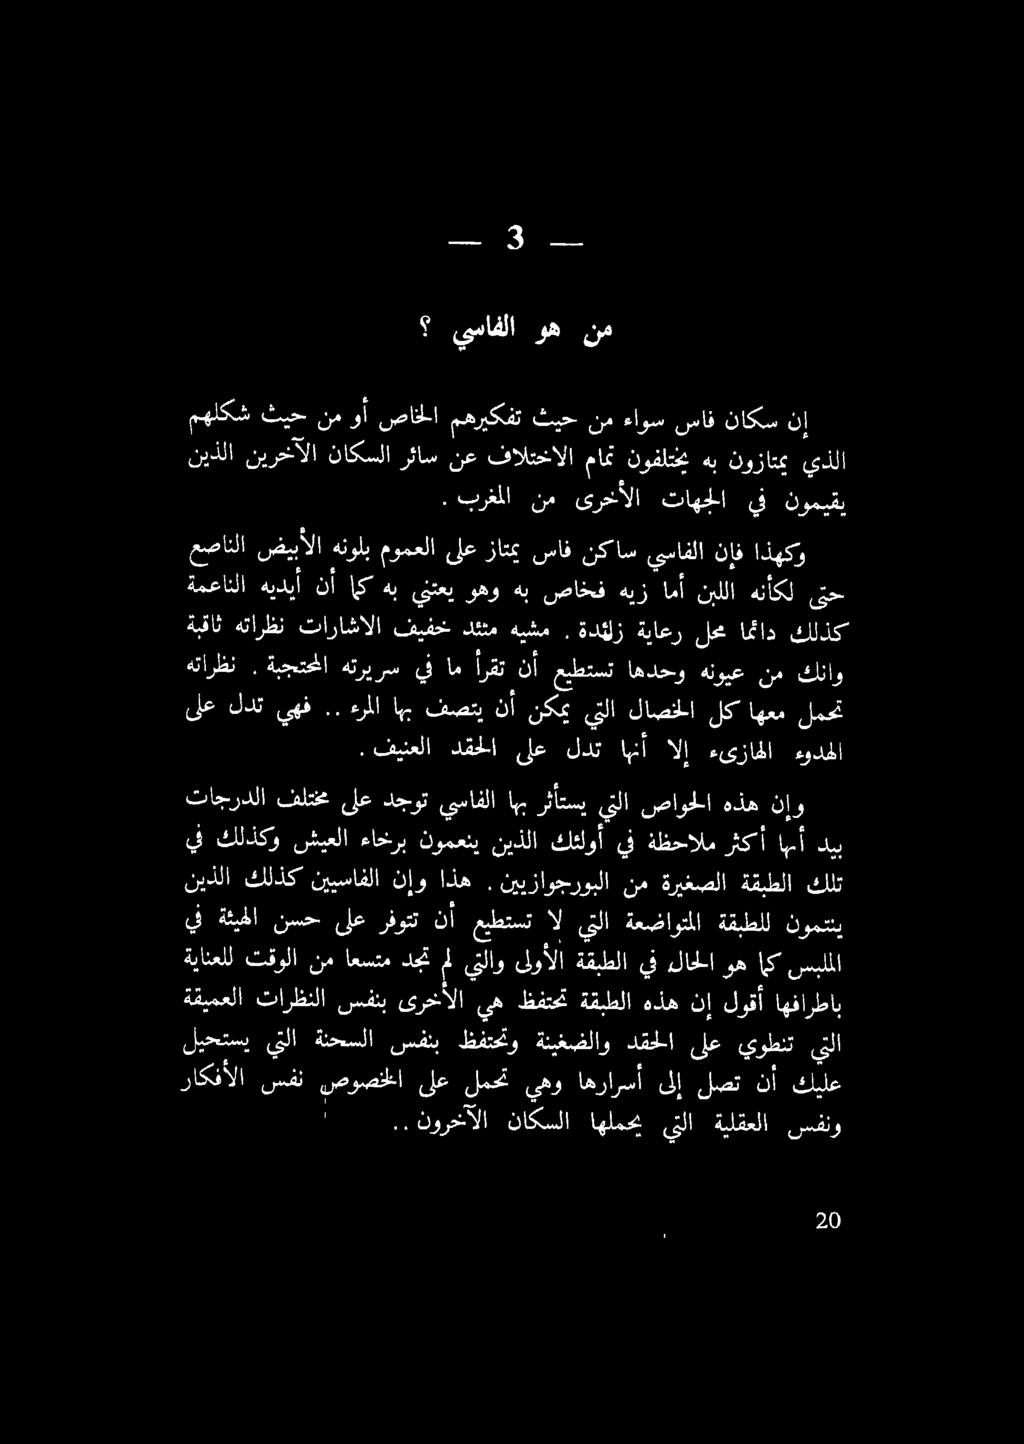 — 3 —
من هو الفاسي ؟
إن سكان فاس سواء من حيث تفكيرهم الخاص أو من حيث شكلهم
الذي يمتازون به يختلفون تمام الاختلاف عن سائر السكان الآخرين الذين
يقيمون في الجهات الأخرى من المغرب .
وكهذا فإن الفاسي ساكن فاس يمتاز على العموم بلونه الأبيض الناصع
حتى لكأنه اللبن أما زيه فخاص به وهو يعتني به كما أن أيديه الناعمة
كذلك دائما محل رعاية زائدة . مشيه متئد خفيف الاشارات نظراته ثاقبة
وانك من عيونه وحدها تستطيع أن تقرأ ما في سريرته المحتجبة . نظراته
تحمل معها كل الخصال التي يمكن أن يتصف بها المرء .. فهي تدل على
الهدوء الهازىء إلا أنها تدل على الحقد العنيف .
وإن هذه الخواص التي يستأثر بها الفاسي توجد على مختلف الدرجات
بيد أنها أكثر ملاحظة في أولئك الذين ينعمون برخاء العيش وكذلك في
تلك الطبقة الصغيرة من البورجوازيين . هذا وإن الفاسيين كذلك الذين
ينتمون للطبقة المتواضعة التي لا تستطيع أن تتوفر على حسن الهيئة في
الملبس كما هو الحال في الطبقة الأولى والتي لم تجد متسعا من الوقت للعناية
باطرافها أقول إن هذه الطبقة تحتفظ هي الأخرى بنفس النظرات العميقة
التي تنطوي على الحقد والضغينة وتحتفظ بنفس السحنة التي يستحيل
عليك أن تصل إلى أسرارها وهي تحمل على الخصوص نفس الأفكار
ونفس العقلية التي يحملها السكان الآخرون ..
20